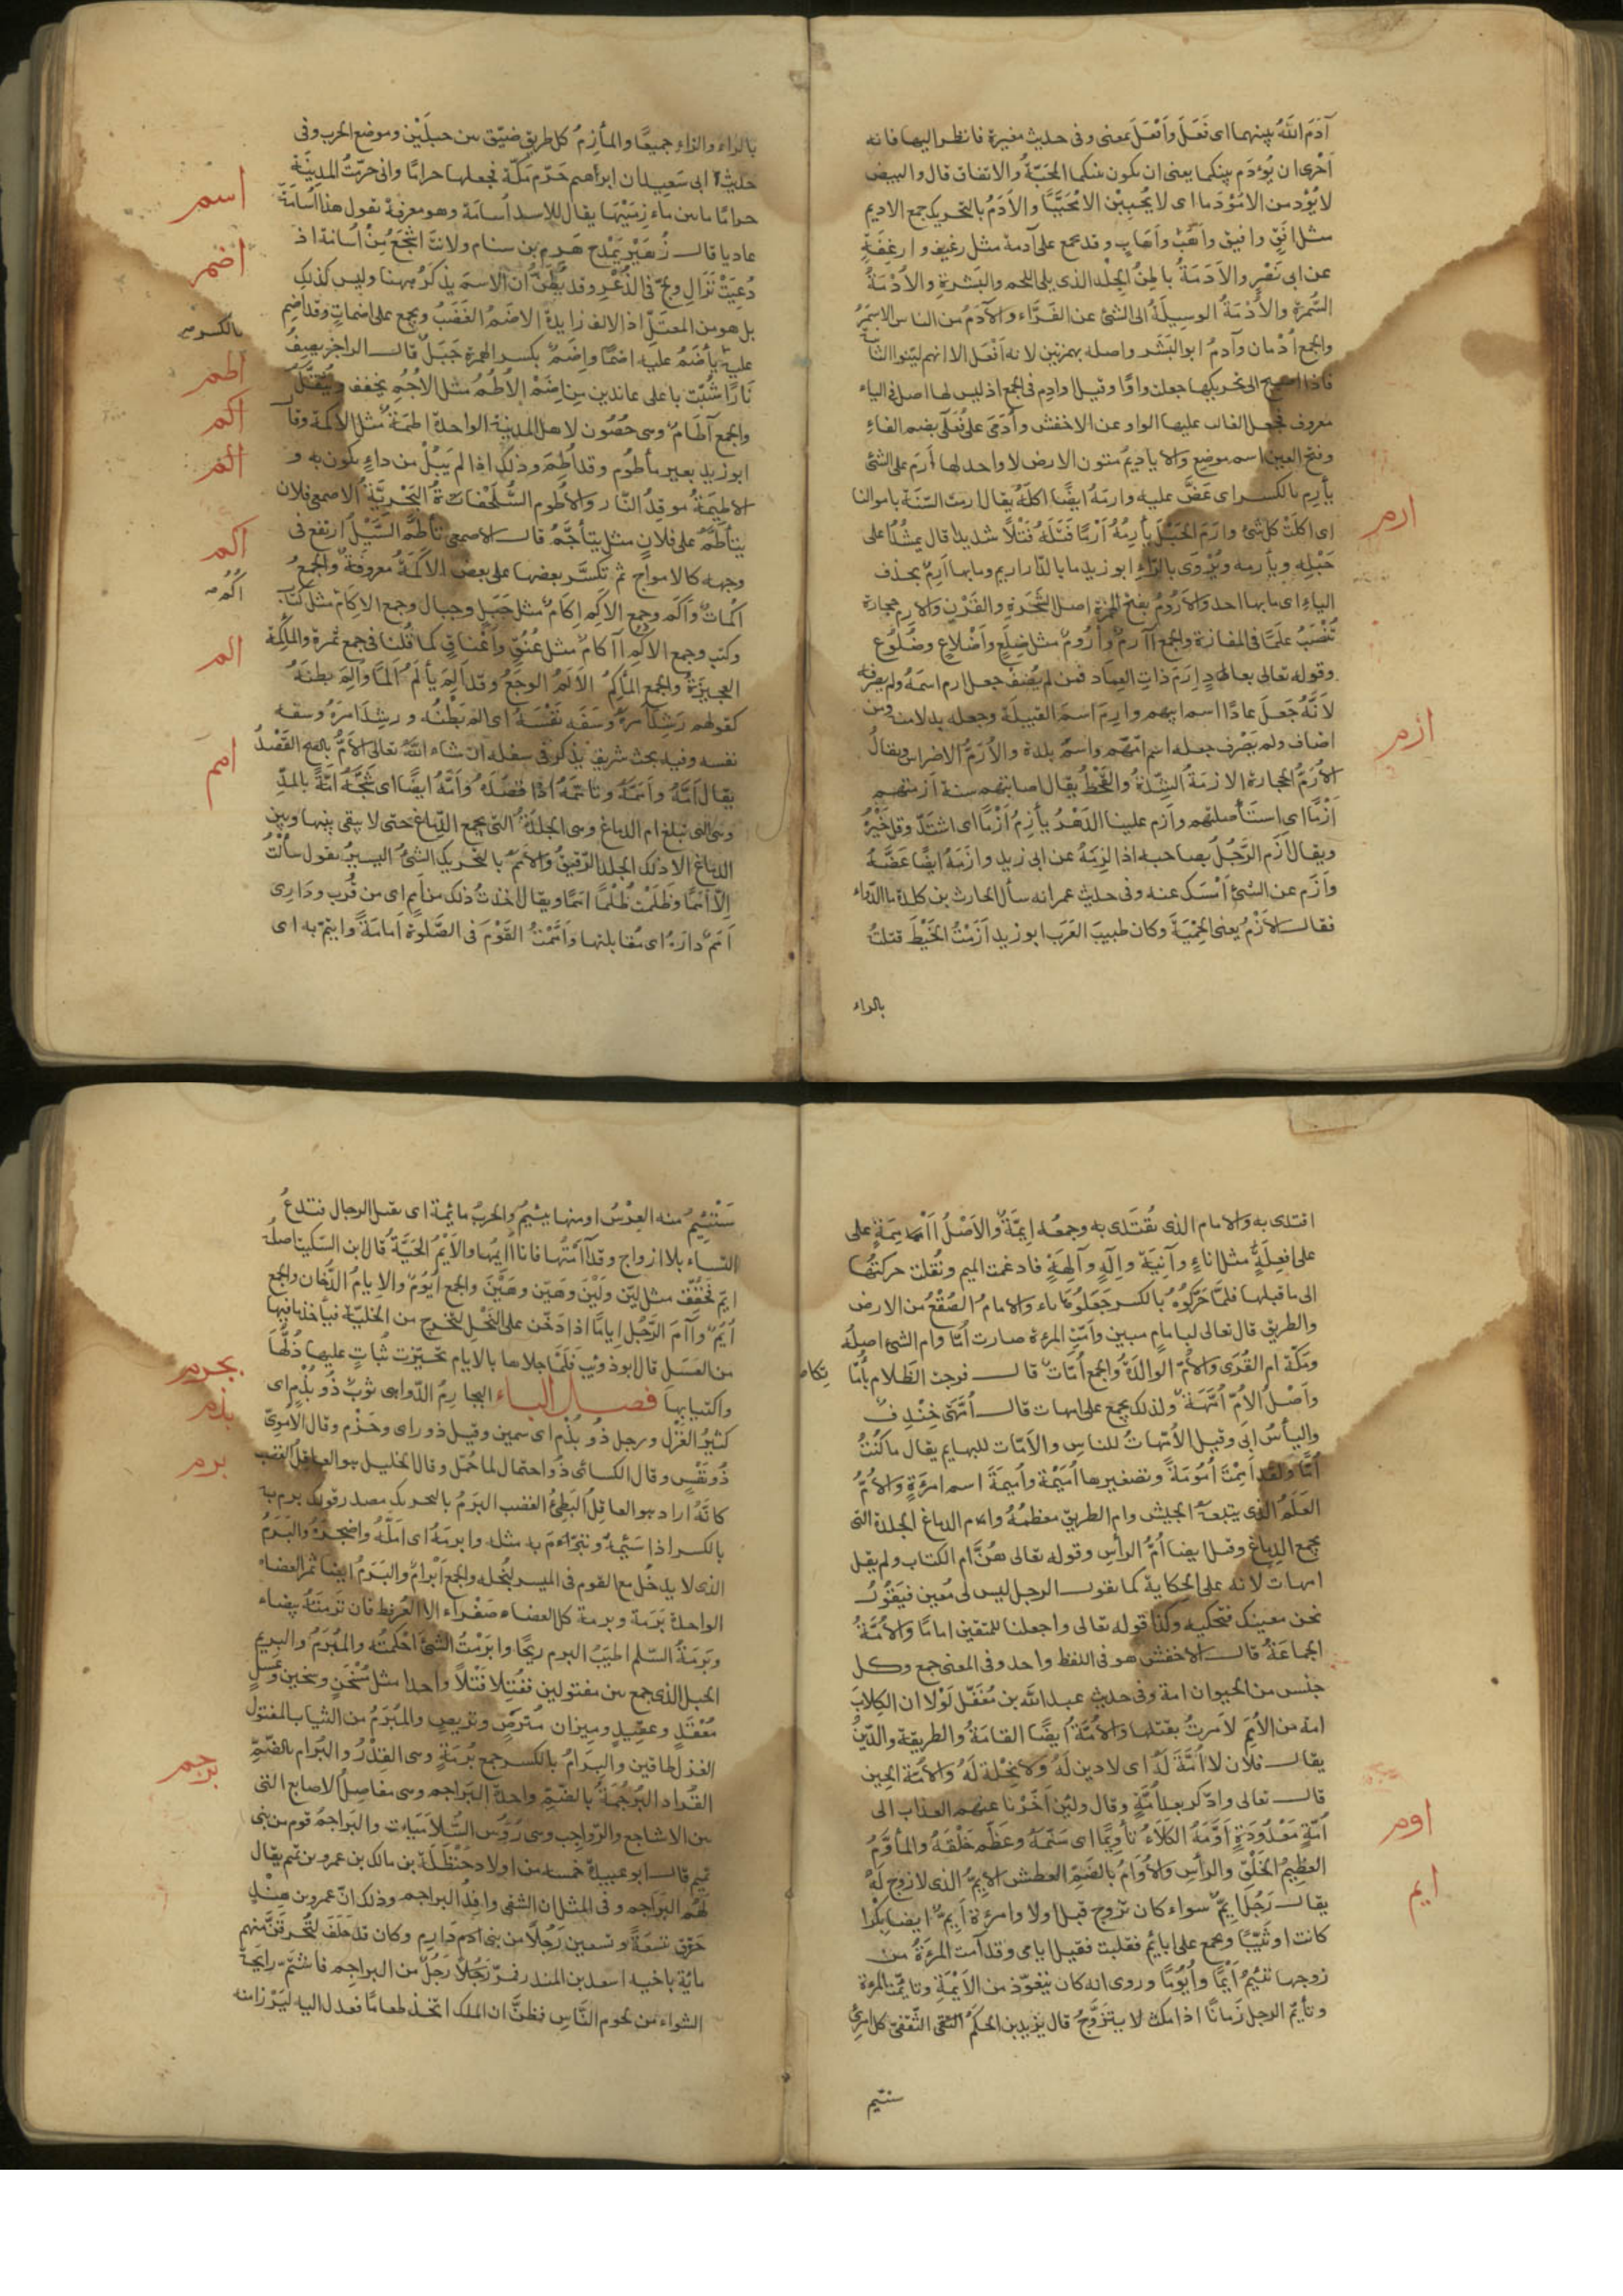 آدَمَ اللّهُ بينهما اى فَعَلَ وَاَفْعَلَ بمعنى وفى حديث مغيرة فانظر اليها فانه
اَحْرى ان يُؤدَم بينكما يعنى ان تكون بينكما المحَبّةُ والاتفاق قال والبيض
لا يُؤْدمن الا مُؤْدَما اى لا يُحْبِبْن الا مُحَبَّبًا والاَدَمُ بالتحريك جمع الاديم
مثل اَفِيق واَفَق واُهُبٌ وقد يجمع على آدمة مثل رغيف وارغفة
عن ابى نَصْر والاَدَمَةُ باطِنُ الجلد الذى يلى اللحم والبَشَرة والاُدْمَةُ
السُّمرة والاُدْمَةُ الوسيلَةُ الى الشئ عن الفَرّاء والآدَمُ من الناس الاسمَرُ
والجمع اُدْمان وآدمُ ابو البَشَر واصله بهمزتين لانه اَفْعَل الا انهم ليّنوا الثانية
فاذا احتيج الى تحريكها جعلت واوًا وقيل اوادِم فى الجمع اذ ليس لها اصل فى الياء
معروف فجعل الغالب عليها الواو عن الاخفش واُدَمَى على فُعَلَى بضم الفاء
وفتح العين اسم موضع والاياديمُ متون الارض لا واحد لها اَرَم على الشئ
يأرِم بالكسر اى عَضَّ عليه وارمَهُ ايضًا اكلَهُ يقال ارمت السّنَة باموالنا
ارم
اى اكلَتْ كل شئ وارَمَ الحَبْلَ يأرِمُهُ اَرْمًا فَتَلَهُ فَتْلاً شديدا قال يمشُدُ اعلى
حَبْلِه ويأرمه ويُرْوَى بالزاء ابو زيد ما بالدّار اريم وما بها اَرِمٌ بحذف
الياء اى ما بها احد والاَرُومُ بفتح الهمزة اصل الشَّجَرةِ والقَرْنِ والاِرَم حجارة
تُنْصَبُ علمًا فى المفازة والجمع آرامٌ واُرُومٌ مثل ضِلَعٍ واَضْلاعٍ وضُلُوعٍ
وقوله تعالى بعادٍ اِرَمَ ذَاتِ العِمَاد فمن لم يُضِفْ جعل ارم اسمَهُ ولم يصرفه
لاَنّهُ جَعَلَ عادًا اسم ابيهم وارم اسمَ القبيلة وجعله بدلا منه ومن
اضاف ولم يَصْرف جعله اسم امّهم واسمَ بلدة والاُرَّمُ الاضراس ويقالُ
ازم
الاُرَّمُ الحجارة الازمَةُ الشِّدّةُ والقَحْطُ يقال اصابتهم سنة اَزَمَتهم
اَزْمًا اى استَأصلتهم واَزَم علينا الدَّهْرُ يأزِمُ اَزْمًا اى اشتَدَّ وقلّ خَيْرُهُ
ويقال اَزَمَ الرَّجُلُ بصاحبه اذا لَزِمَهُ عن ابى زيد وازمَهُ ايضًا عَضَّهُ
واَزَم عن الشئ اَمْسَك عنه وفى حديث عمر انه سأل الحارث بن كلدة ما الدّواء
فقال الاَزْمُ يعنى الحِمْيَةَ وكان طبيبَ العَرَب ابو زيد اَزَمْتُ الخَيْطَ فتلتُهُ
بالراء
بالراء والزاء جميعًا والمأزِمُ كل طريق ضيّق بين جبلَيْن وموضع الحرب وفى
حديث ابى سَعِيد ان ابراهيم حَرّم مَكّة فجعلها حراما وانى حرّمتُ المدينة
اسم
حرامًا ما بين مأزِمَيْهَا يقال للاسد اُسامَة وهو معرفة تقول هذا اُسَامَةُ
عاديا قال زُهَيْر يَمْدح هَرِم بن سنام ولانتَ اشْجَعُ مِنْ اُسامة اذ
اضم
دُعِيَتْ نَزَالِ ولُجّ فى الذُّعْرِ وقد يُظَنُّ ان الاسم يذكر ههنا وليس كذلك
بل هو من المعتَلّ اذ الالف زايدة الاضَمُ الغَضَبُ ويجمع على اضمات وقد اَضِم
بالكسر
عليه يأضَمُ عليه اضمًا واِضَمٌ بكسر الهمزة جَبَلٌ قال الراجز يصِفُ
اطم
نَارًا شُبّت باعلى عاندين من اِضَمْ الاُطُمُ مثل الاُجُمِ يخفف ويُثقّلُ
اكم
والجمع آطَامٌ وهى حُصُون لاهل المدينة الواحدة اطمَةٌ مثل الاَكَمة وقال
الم
ابو زيد بعير مأطُوم وقد اُطِمَ وذلك اذا لم يَبُلْ من داءٍ يكون به و
الاطِيمَةُ موقِدُ النّار والاَطُوم السُّلَحْفاةُ البَحْريَّةُ الاصمعى فلان
يتأَطَّمُ على فلان مثل يتأجَّمُ قال الاصمعى تأطّمَ السَّيْلُ ارتفع فى
اكم
وجهه كالامواج ثم تكسَّر بعضها على بعض الاَكَمَةُ معروفة والجمعُ
اكماتٌ واَكَم وجمع الاَكَمِ اِكَامٌ مثل جَبَلٍ وجبال وجمع الاكام مثل كتاب
اُكُم
وكتب وجمع الاُكُمِ آكامٌ مثل عُنُقٍ واَعْناقٍ كما قُلنا فى جمع ثمرة والمأكمة
الم
العجيزَةُ والجمع المآكِمُ الاَلَمُ الوجَعُ وقد اَلِمَ يألَمُ اَلَمًا واَلِمَ بطنَهُ
كقولهم رَشِدَ اَمرَهُ وسَفِهَ نَفْسَهُ اى الم بَطْنُه ورشد امرُهُ وسفه
نفسه وفيه بحث شريف يذكر فى سفه ان شاء اللّهُ تعالى الاَمُّ بالفتح القَصْدُ
امم
يقال اَمَّهُ واَمّمَهُ وتأمَّمَهُ اذا قصَدَهُ واَمَّهُ ايضًا اى شَجَّهُ آمَّةً بالمدّ
وهى التى تبلغ ام الدماغ وهى الجلدةُ التى يجمع الدّماغ حتى لا يبقى بينها وبين
الدماغ الا ذلك الجلد الرّقيقُ والاَمَمُ بالتحريك الشئ اليسيرُ يقول ما سألتُ
اِلاّ اَمَمًا وظَلَمْت ظُلْمًا اممًا ويقال اخذتُ ذلك من اَمَمٍ اى من قُرب ودَارى
اَمَمُ دَارِهِ اى مُقابلتها واَمَمْتُ القَوْمَ فى الصَّلوة اَمامَةً وايتمّ به اى
اقتدى به والامام الذى يُقتَدى به وجمعُه ايِمَّةٌ والاَصْلُ أأمِمَةٍ على
على افعِلَةٍ مثل اناءٍ وآنِيَة واِلهٍ وآلِهَةٍ فادغمت الميم ونُقلت حركتُها
الى ما قبلها فلمّا حَرّكُوهُ بالكسر جَعَلُوهَا ياء والامامُ الصُّقْعُ من الارض
والطريق قال تعالى لبِامامٍ مبين واَمّتِ المرءة صارت اُمًّا وام الشئ اصلُه
ومَكّة ام القُرَى والاُمّ الوالِدَةُ والجمع اُمّات قال فرجت الظَلام بأُمّا تكا
واَصْلُ الاُمّ اُمَّهَةٌ ولذلك يجمع على امهات قال اُمَّهَتى خِنْدِف
والياسُ اَبى وقيل الاُمّهاتُ للناس والاُمّات للبهايم يقال ما كُنْتُ
اُمًّا ولقد اَمِمْتَ اُمُومَةً وتصغيرها اُمَيْمة واُمَيمَةَ اسم امرءة والاُمُّ
العَلَمُ الذى يتبعهُ الجيش وام الطريق معظمُهُ وام الدماغ الجلدة التى
يجمع الدماغ ويقال ايضا اُمُّ الرأس وقوله تعالى هُنَّ ام الكتاب ولم يقل
امهات لانه على الحكاية كما يقول الرجل ليس لى مُعين فيَقُولُ
نحن معينك فتحكيه وكذا قوله تعالى واجعلنا للمتقين اماما والاُمَّةُ
الجماعَةُ قال الاخفش هو فى اللفظ واحد وفى المعنى جمع وكل
جنْس من الحيوان امة وفى حديث عبد اللّه بن مُغَفّل لَوْلا ان الكِلابَ
امة من الاُمِمَ لاَمرتُ بقتلها والاُمَّةُ ايضًا القامَةُ والطريقة والدّينُ
يقال فلان لا اُمَّةَ لَهُ اى لا دين لَهُ ولا نِحْلة لَهُ والاُمّة الحين
قال تعالى وادّكر بعد اُمَّةٍ وقال ولئن اَخّرْنا عنهم العذاب الى
اُمّةٍ مَعْدُودَةٍ اَوّمَهُ الكَلاءُ تأويمًا اى سَمّنَهُ وعَظّم خَلْقَهُ والمأَوَّمُ
اوم
العظيمُ الخَلْق والرأس والاُوَامُ بالضّمّ العطش الاَيِّمُ الذى لا زوج لَهُ
ايم
يقال رَجُل ايّمٌ سواء كان تزوج قبل اولا وامرءة اَيّمٌ ايضا بِكْرا
كانت او ثَيّبًا ويجمع على ايايمُ فقلبت فقيل ايامى وقد آمت المرءَةُ من
زوجها تئيمُ اَيْمًا واُيُومًا وروى انه كان يتعَوّذ من الاَيْمَةِ وتايّمتِ المرءة
وتأيّم الرجل زَمانًا اذا مكث لا يتزوَّجُ قال يزيد بن الحكم الثقفى كل امرئ
ستئيم
سَتَئيمُ منه العِرْسُ او منها يئيمُ والحربُ مائِمة اى تقتل الرجال فتدعُ
النساء بلا ازواج وقد آأمْتُها فانا اُايمُها والاَيْمُ الحَيّةُ قال ابن السّكيت اصلُهُ
ايّم فخُفّف مثل ليّن ولَيْن وهَيّن وهَيْن والجمع اُيُومٌ والايامُ الدُّخان والجمع
اُيُم وآمَ الرَّجُل اِيامًا اذا دَخّن على النَحْل لتخرج من الخلِيّة فيأخذ ما فيها
من العسَل قال ابو ذويْب فَلمّا جلاها بالايام تحيّزت ثُباتٍ عليها ذُلُّهَا
واكتيابها فصل الباء البجارِمُ الدّواهى ثوبٌ ذُو بُذْمٍ اى
بجرم
كثيرُ الغَزْل ورجل ذُو بُذْمٍ اى سمين وقيل ذو راى وحَزْم وقال الاُمَوِىّ
بذم
ذُو نَفْسٍ وقال الكسائى ذُو احتمال لما حُمّل وقال الخليل هو العاقِلُ الغضب
برم
كانّهُ اراد هو العاقِلُ البَطِئُ الغضب البَرَمُ بالتحريك مصدر قولك برم به
بالكسر اذا سَئِمهُ وتَبَرّمَ به مثله وابرمَهُ اى اَملّهُ واضجَرَهُ والبَرَمُ
الذى لا يدخُل مع القوم فى الميسر لبُخله والجمع اَبْرامٌ والبَرَمُ ايضا ثمر العضاه
الواحدة بَرَمة وبرمة كل العضاه صَفْراء الا العُرْفط فان بَرَمَتَهُ بيضاء
وبَرَمَةُ السّلم اطيَبُ البرم ريحًا وابرَمْتُ الشَئ احْكَمْتُه والمُبْرَمُ والبريم
الحبل الذى جمع بين مفتولين ففُتِلا فَتْلاً واحدا مثل مُسْخَنٍ وسخين وعَسَلٍ
مُعْقَدٍ وعقِيدٍ وميزان مُتْرَصٍ وتريصٍ والمُبْرَمُ من الثياب المفتول
الغزل طاقين والبِرَامُ بالكسر جمع بُرْمَةٍ وهى القِدْرُ والبُرام بالضّمّ
القُراد البُرْجُمَةُ بالضّمّ واحدة البَراجم وهى مفاصِلُ الاصابع التى
برجم
بين الاشاجع والرّواجب وهى رؤُس السُّلاميات والبراجمُ قوم من بنى
تميم قال ابو عبيدة خمسة من اولاد حَنْظَلَة بن مالك بن عمرو بن تميم يقال
لَهُم البَراجم وفى المثل ان الشقى وافِدُ البراجم وذلك انّ عمرو بن هِنْدٍ
حَرّق تسعَةً وتسعين رَجُلاً من بنى دارِم وكان قد حَلَفَ لتُحرقنّ منهم
مائة باخيه اسعد بن المنذر فمرّ رَجُلٌ من البراجم فاشتمّ رايحَةَ
الشواء من لحوم النّاس فظنّ ان الملك اتّخذ طعامًا فعدل اليه ليَرْزأ منه